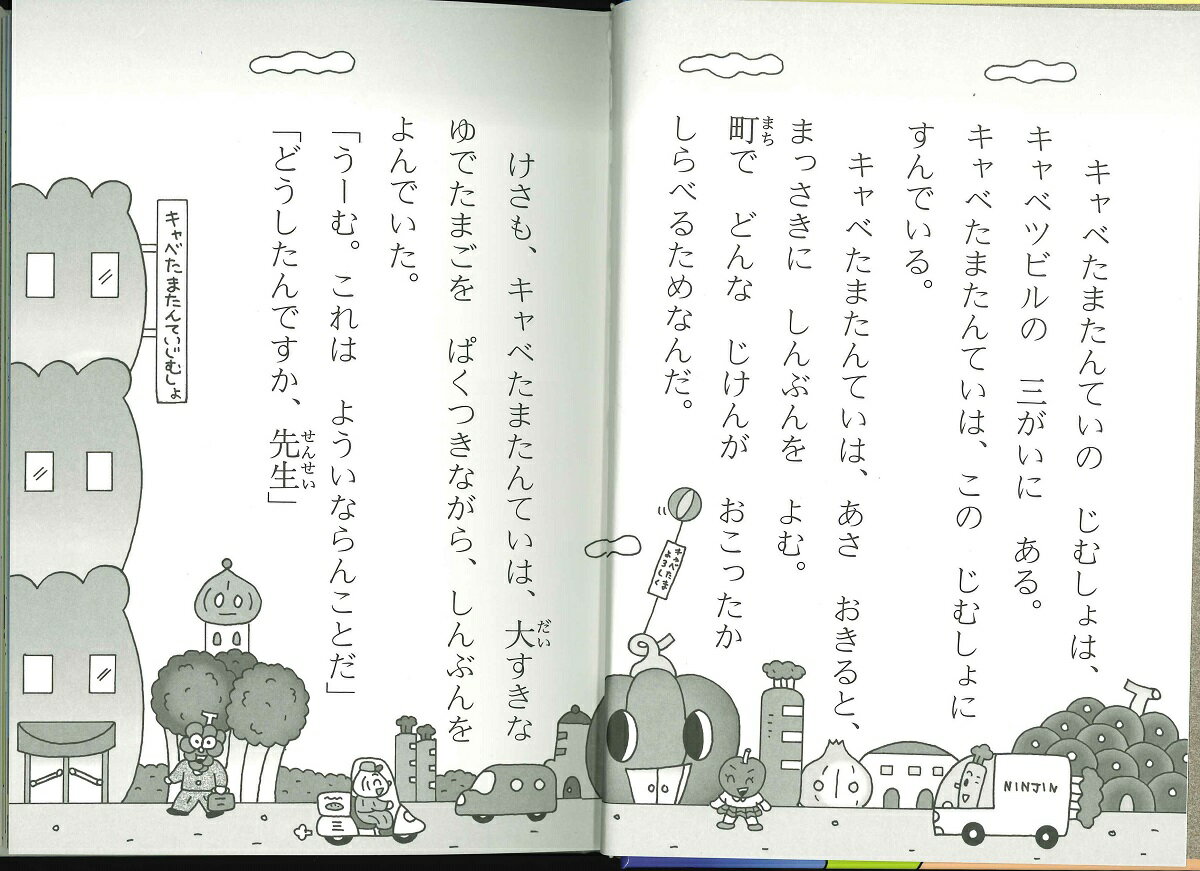 キャベたまたんていの　じむしょは、
キャベツビルの　三がいに　ある。
キャベたまたんていは、この　じむしょに
すんでいる。
キャベたまたんていは、あさ　おきると、
まっさきに　しんぶんを　よむ。
町で　どんな　じけんが　おこったか
まち
しらべるためなんだ。
キャベたま
よろしく
NINJIN
けさも、キャベたまたんていは、大すきな
だい
ゆでたまごを　ぱくつきながら、しんぶんを
よんでいた。
「うーむ。これは　よういならんことだ」
「どうしたんですか、先生」
せんせい
キャベたまたんていじむしょ